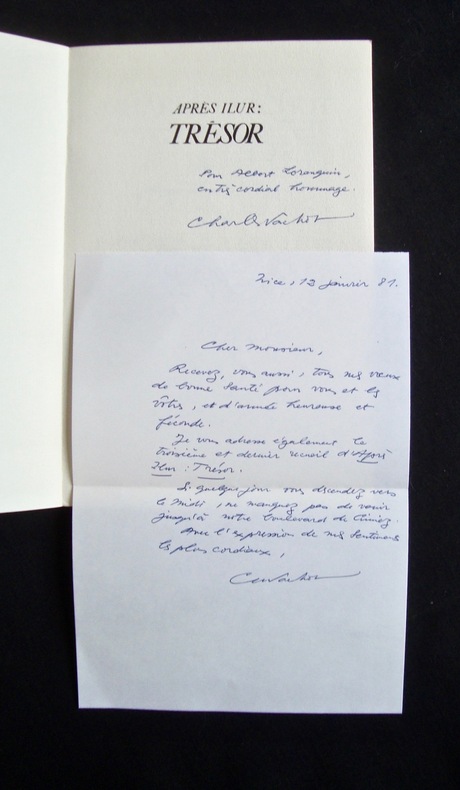 APRÈS ILUR:
TRÉSOR
Pour Albert Loranquin,
en très cordial hommage.
Charles Vachot
Nice, 12 janvier 81.
Cher Monsieur,
Recevez, vous aussi, tous mes vœux
de bonne santé pour vous et les
vôtres, et d'année heureuse et
féconde.
Je vous adresse également le
troisième et dernier recueil d'Après
Ilur : Trésor.
Si quelque jour vous descendez vers
le Midi, ne manquez pas de venir
jusqu'à notre boulevard de Cimiez.
Avec l'expression de mes sentiments
les plus cordiaux,
Ch Vachot